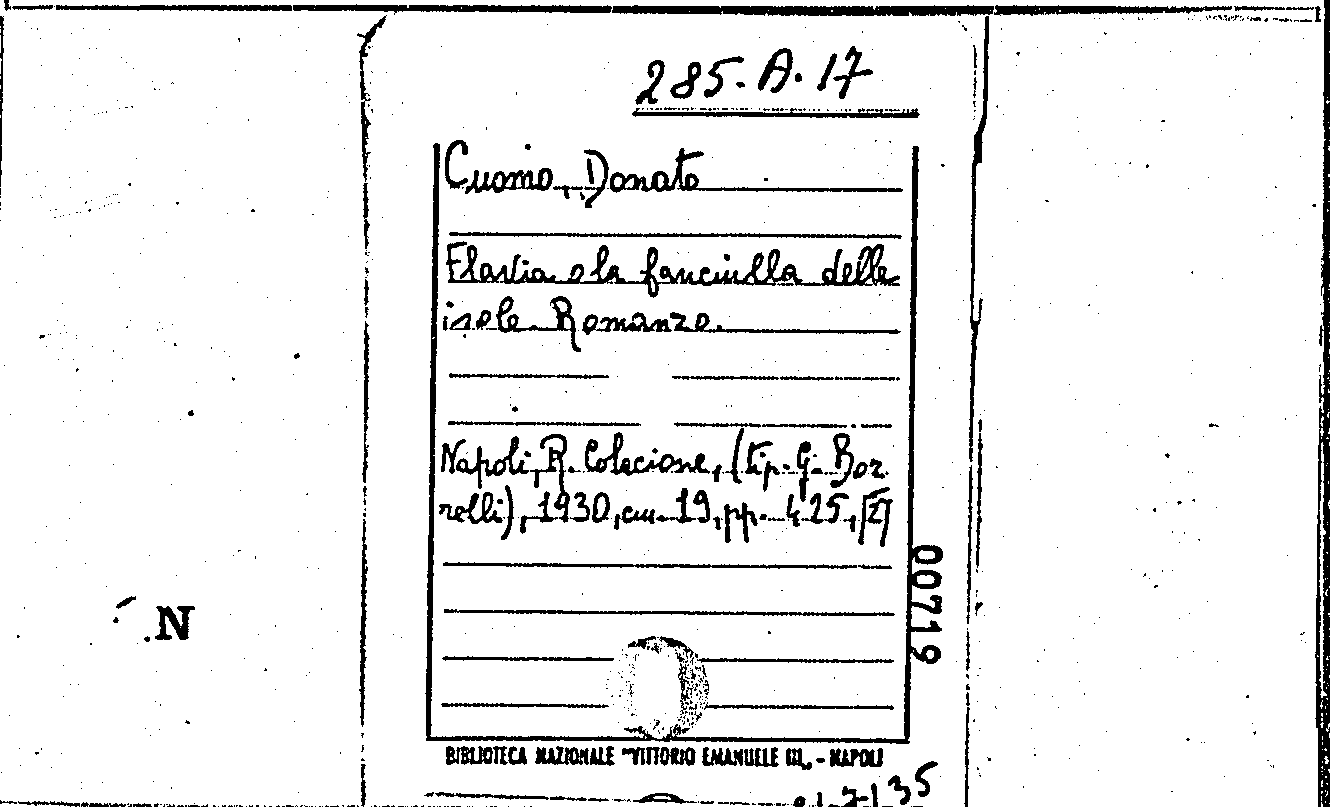 285.A.17
Cuomo, Donato
Flavia o la fanciulla delle
isole. Romanzo.
Napoli, R. Colacione, (tip. G. Bor
relli), 1930, cm. 19, pp. 425, [2]
00719
N
BIBLIOTECA NAZIONALE "VITTORIO EMANUELE III„ - NAPOLI